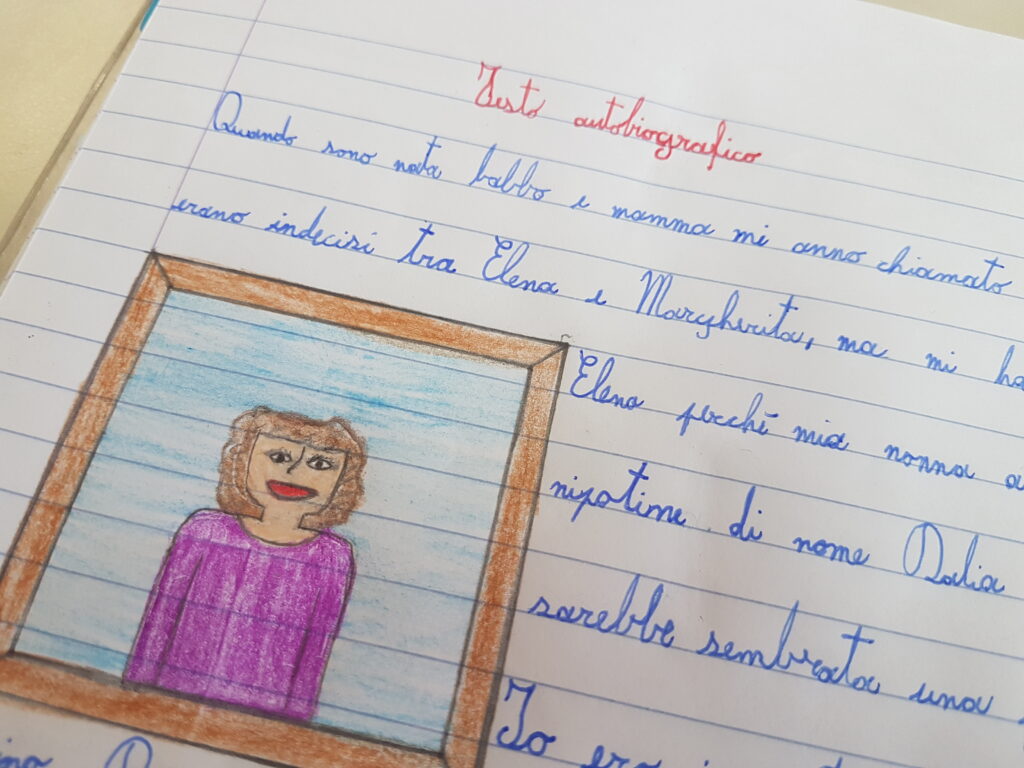 Testo autobiografico
Quando sono nata babbo e mamma mi anno chiamato
erano indecisi tra Elena e Margherita, ma mi
Elena perché mia nonna
nipotine di nome Dalia
sarebbe sembrata una
Io